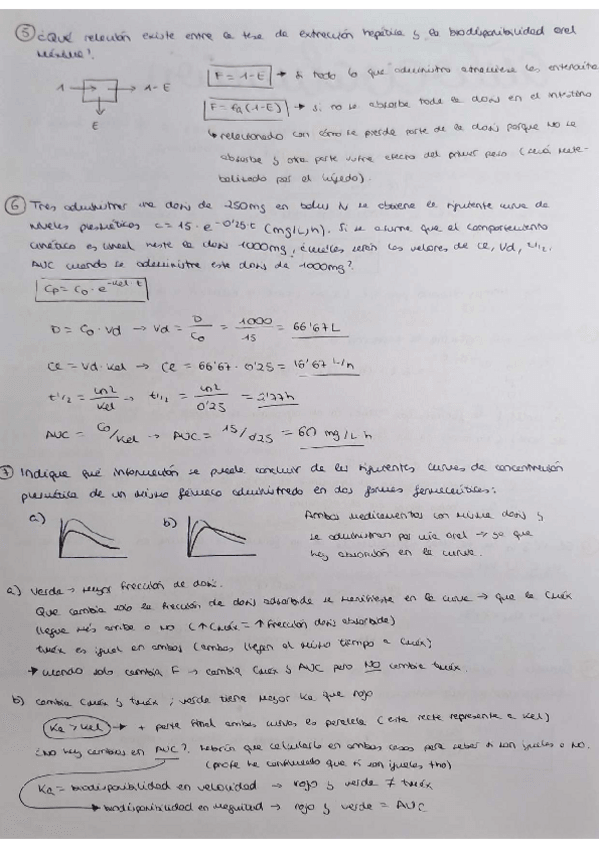 ⑤ ¿Qué relación existe entre la tasa de extracción hepática y la biodisponibilidad oral
máxima?
1 → → 1-E
E
F = 1-E → si todo lo que administro atraviesa los enterocitos
F = fa(1-E) → si no se absorbe toda la dosis en el intestino
↳ relacionado con cómo se pierde parte de la dosis porque no se
absorbe y otra parte sufre efecto del primer paso (será meta-
bolizado por el hígado).
⑥ Tras administrar una dosis de 250mg en bolus IV se obtiene la siguiente curva de
niveles plasmáticos c = 15·e^-0'25·t (mg/L, h). Si se asume que el comportamiento
cinético es lineal hasta la dosis 1000mg, ¿cuáles serán los valores de Ce, Vd, t1/2,
AUC cuando se administre esta dosis de 1000mg?
Cp = C0·e^-kel·t
D = C0·Vd → Vd = D/C0 = 1000/15 = 66'67 L
Ce = Vd·kel → Ce = 66'67·0'25 = 16'67 L/h
t1/2 = ln2/kel → t1/2 = ln2/0'25 = 2'77h
AUC = C0/kel → AUC = 15/0'25 = 60 mg/L h
⑦ Indique qué información se puede concluir de las siguientes curvas de concentración
plasmática de un mismo fármaco administrado en dos formas farmacéuticas:
a) b) Ambos medicamentos con misma dosis y
se administran por vía oral → ya que
hay absorción en la curva.
a) Verde → mayor fracción de dosis.
Que cambia solo la fracción de dosis absorbida se manifieste en la curva → que la Cmáx
llegue más arriba o no (↑Cmáx = ↑ fracción dosis absorbida)
tmáx es igual en ambos (ambos llegan al mismo tiempo a Cmáx)
→ cuando solo cambia F → cambia Cmáx y AUC pero NO cambia tmáx.
b) cambia Cmáx y tmáx ; verde tiene mayor Ka que rojo
Ka > kel → + parte final ambas curvas es paralela (esta recta representa a kel)
¿No hay cambios en AUC? habría que calcularlo en ambos casos para saber si son iguales o no.
(profe ha confirmado que si son iguales tho)
Ka = biodisponibilidad en velocidad → rojo y verde ≠ tmáx
→ biodisponibilidad en magnitud → rojo y verde = AUC